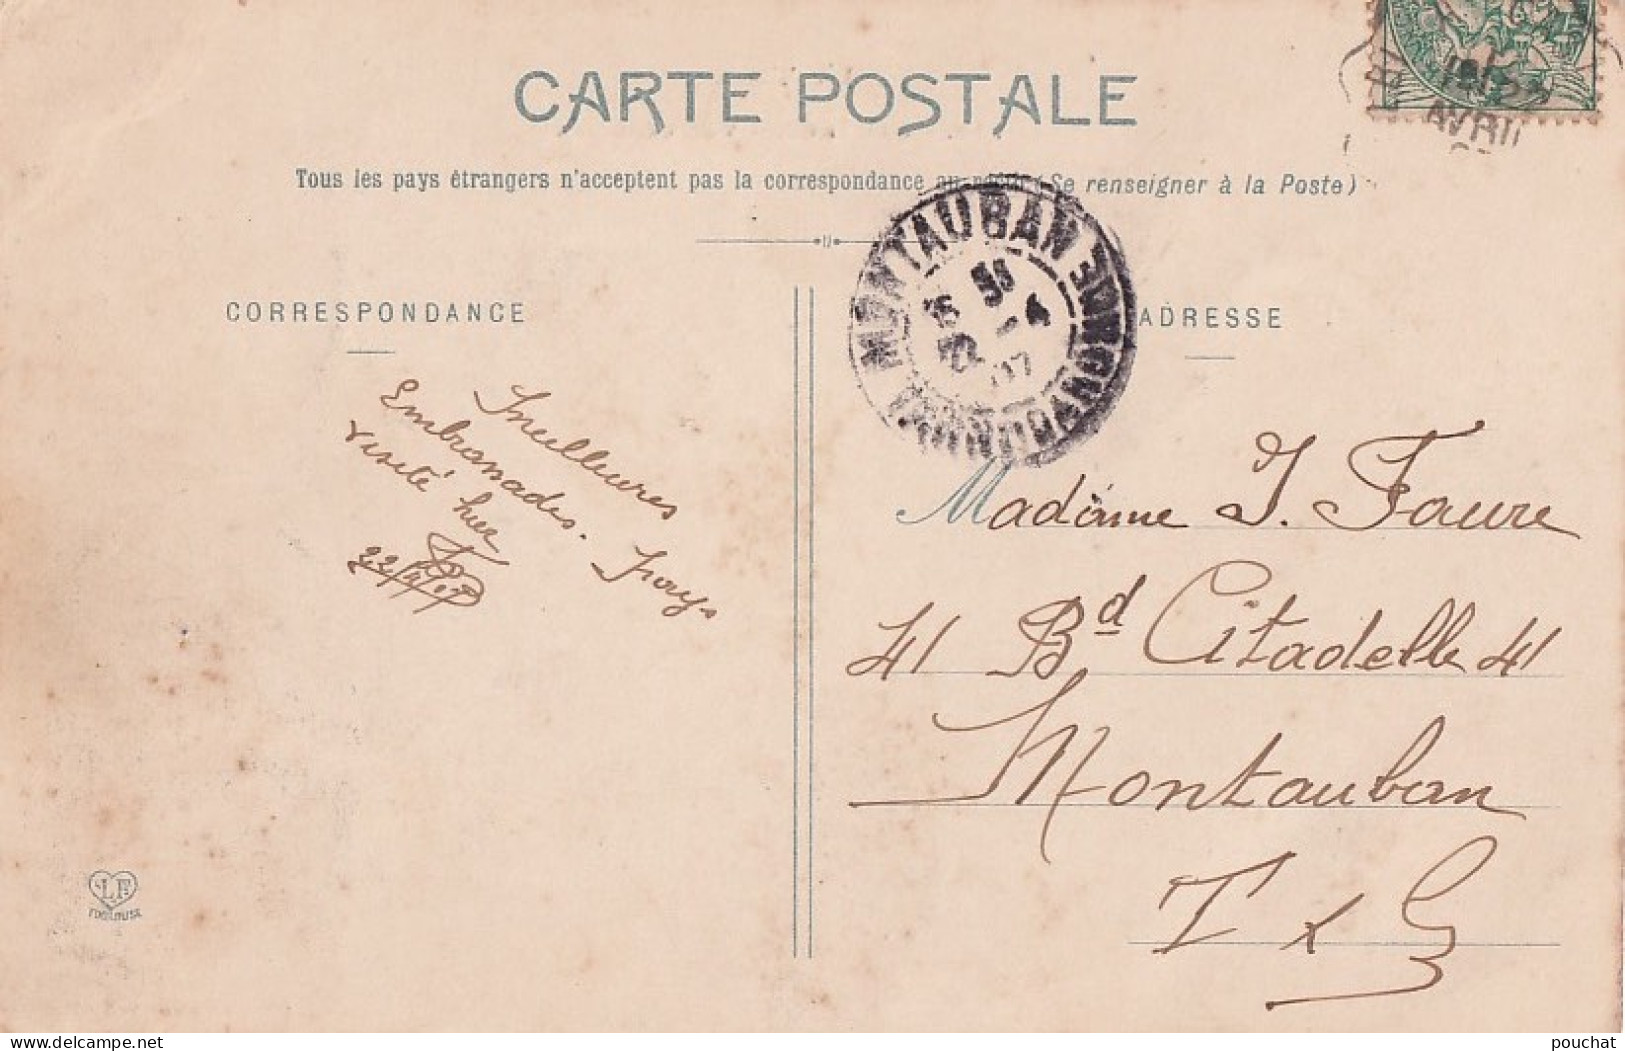 CARTE POSTALE
Tous les pays étrangers n'acceptent pas la correspondance au recto (Se renseigner à la Poste)
CORRESPONDANCE
ADRESSE
AVRIL
MONTAUBAN
22 - 4
07
Meilleures
Embrassades.
visité hier
22/4/07
Madame J. Faure
41 Bd Citadelle 41
Montauban
T & G
LF
TOULOUSE
delcampe.net
pouchat